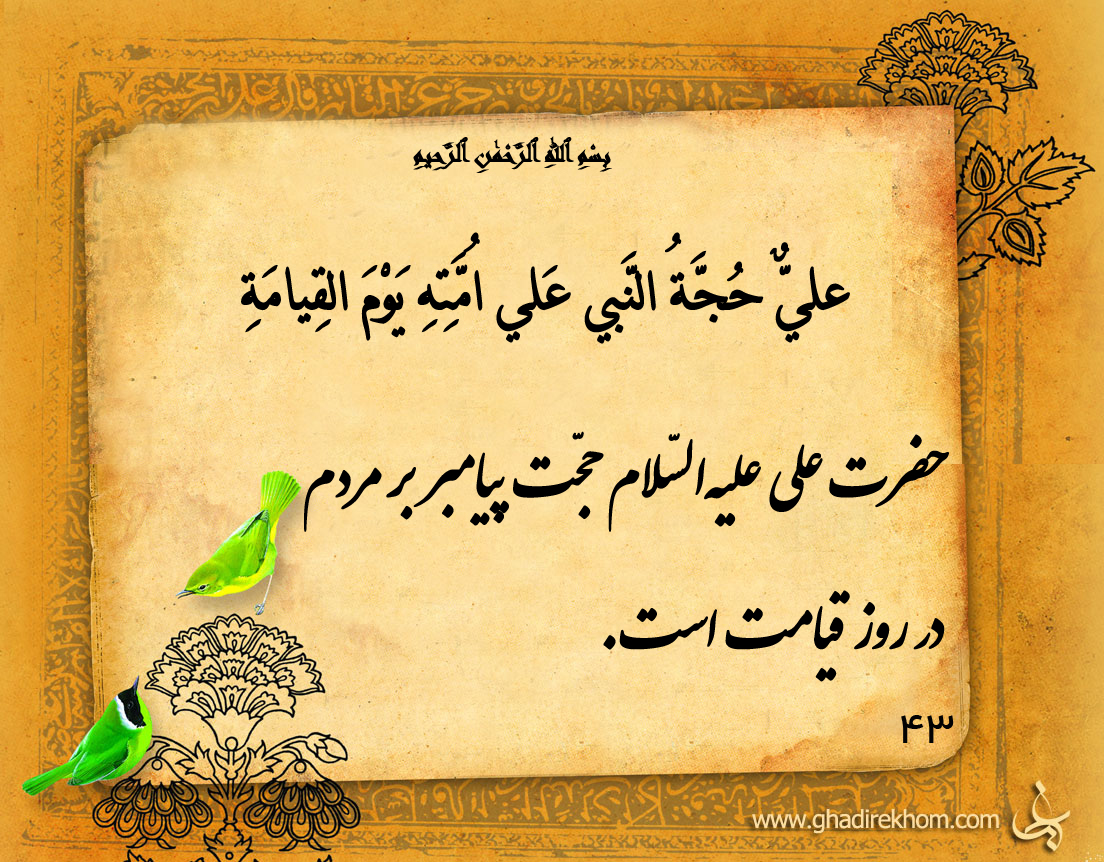 بِسْمِ اللهِ الرَّحْمٰنِ الرَّحِيمِ
عليٌّ حُجَّةُ النَّبي عَلي اُمَّتِهِ يَوْمَ القِيامَةِ
حضرت علی علیه السّلام حجّت پیامبر بر مردم
در روز قیامت است.
۴۳
www.ghadirekhom.com